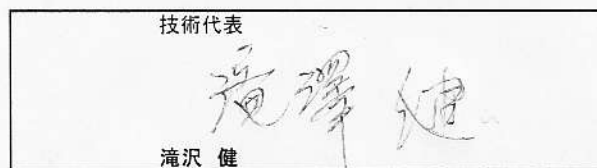 技術代表
滝澤 健
滝沢 健